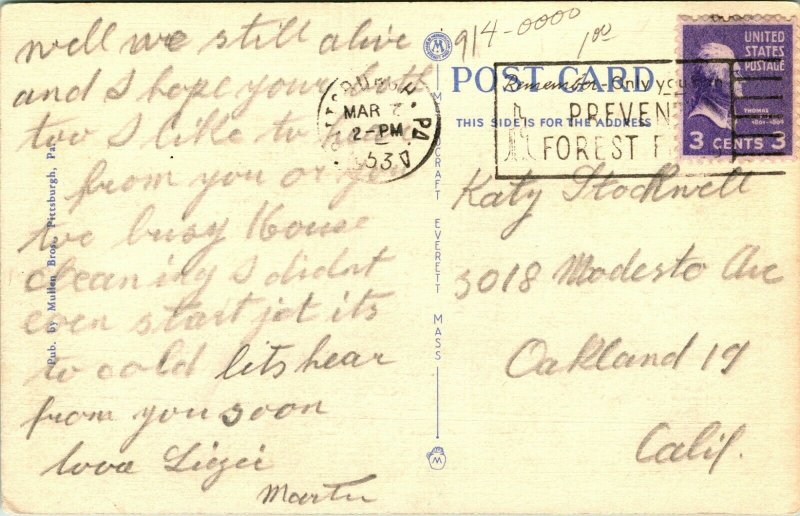 well we still alive
and I hope your both
too I like to hear
from you or you
too busy House
cleaning I didnt
even start jet its
to cold lits hear
from you soon
love Liezi
Martin
Pub. by Mullen Bros., Pittsburgh, Pa.
MIDCRAFT EVERETT MASS
914-0000
1.00
POST CARD
THIS SIDE IS FOR THE ADDRESS
MAR 7
2-PM
1953
PA
Remember-Only you
PREVENT
FOREST F
UNITED
STATES
POSTAGE
THOMAS
3 CENTS 3
Katy Stockwell
3018 Modesto Ave
Oakland 19
Calif.